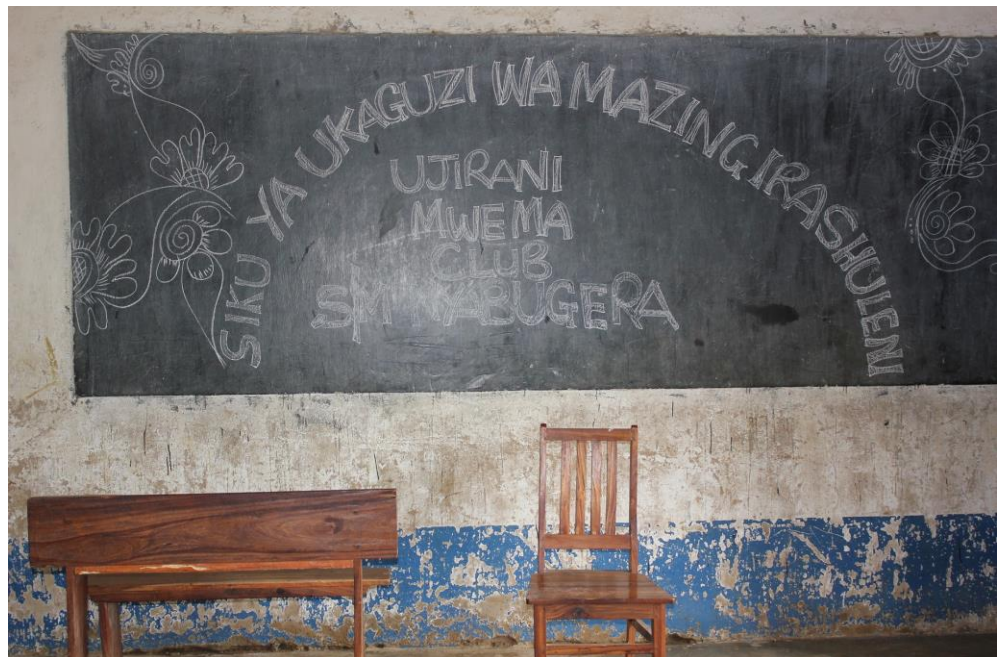 SIKU YA UKAGUZI WA MAZINGIRA SHULENI
UJIRANI
MWEMA
CLUB
S/M YABUGERA